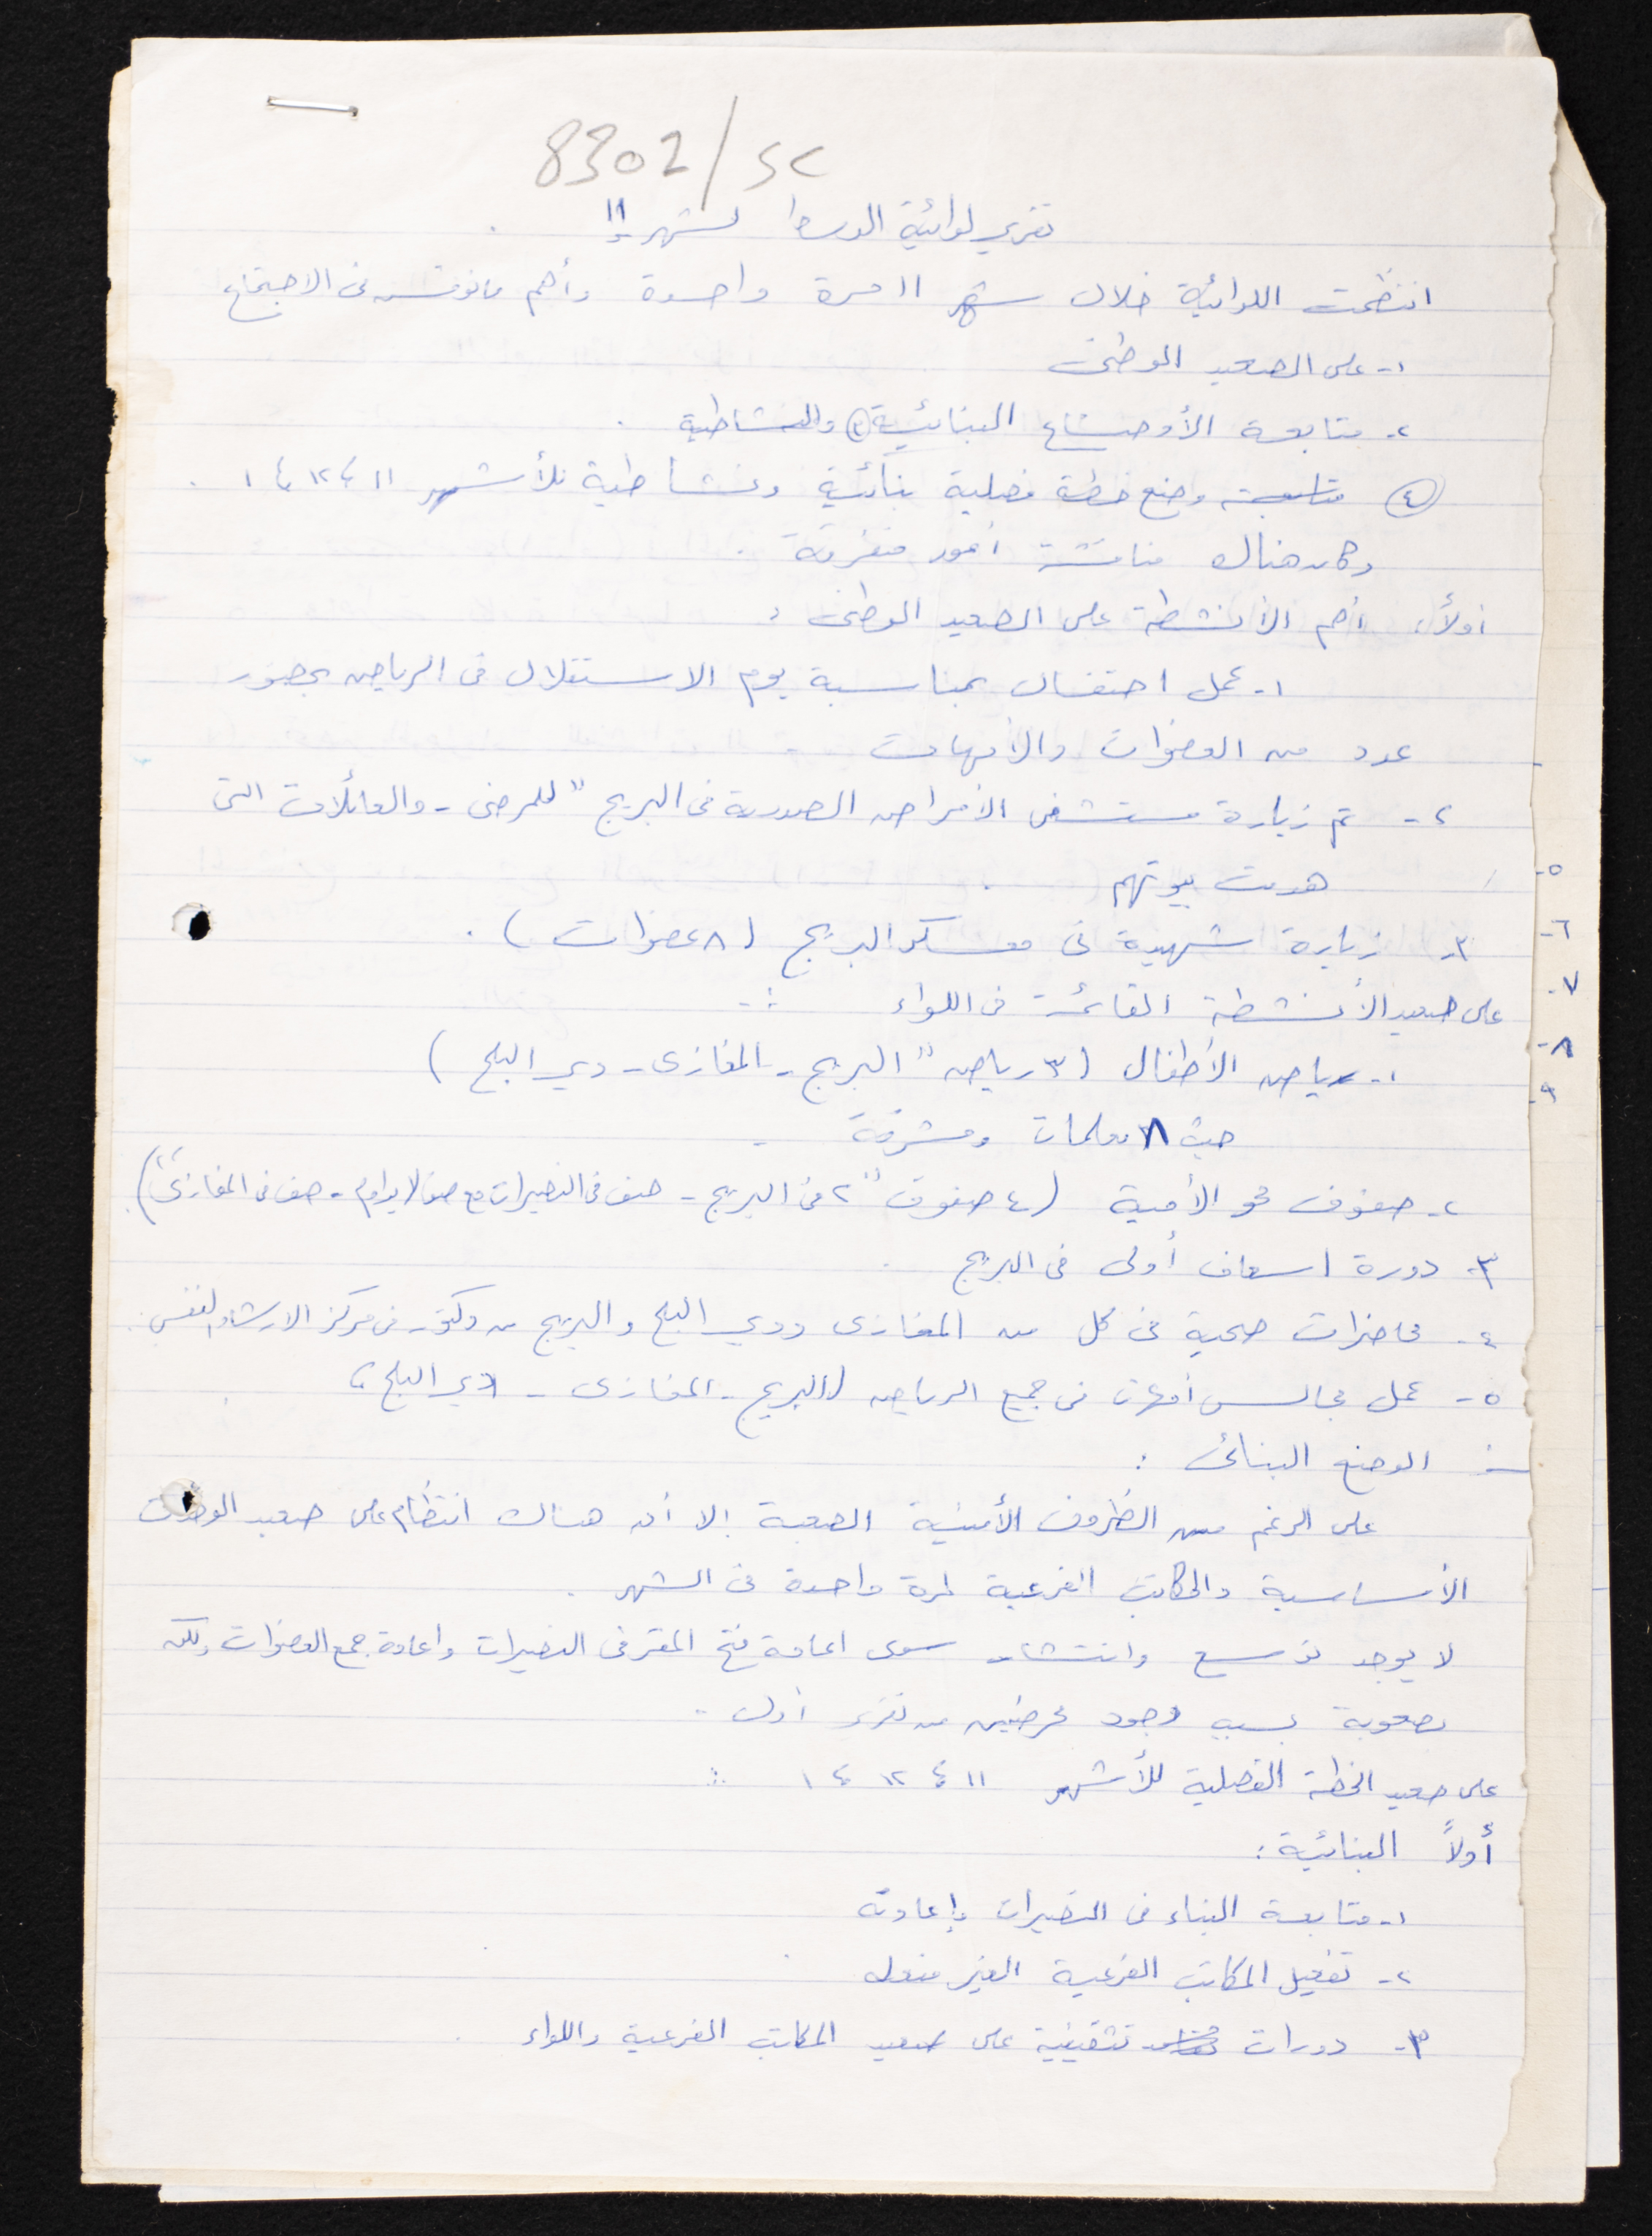 8302/sc
تقرير لوائية الوسطا لشهر 11
انتظمت اللوائية خلال شهر 11 مرة واحدة وأهم ما نوقش فى الاجتماع
١- على الصعيد الوطنى
٢- متابعة الأوضاع البنائية والنشاطية .
متابعة وضع خطة فصلية بنائية ونشاطية للأشهر ١١، ١٢، ١ .
وكان هناك مناقشة أمور متفرقة .
أولاً: أهم الأنشطة على الصعيد الوطنى :
١- عمل احتفال بمناسبة يوم الاستقلال فى الرياض بحضور
عدد من العضوات والأمهات
٢- تم زيارة مستشفى الأمراض الصدرية فى البريج " للمرضى - والعائلات التى
هدمت بيوتهم .
٣- زيارة شهيدة فى معسكر البريج (٨ عضوات) .
على صعيد الأنشطة القائمة فى اللواء :-
١- رياض الأطفال (٣ رياض " البريج - المغازى - دير البلح )
حيث ٨ معلمات ومشرفة -
٢- صفوف محو الأمية (٤ صفوف " ٢ فى البريج - صف فى النصيرات مع صف - صف فى المغازى") .
٣- دورة اسعاف أولى فى البريج .
٤- محاضرات صحية فى كل من المغازى ودير البلح والبريج من دكتور فى مركز الارشاد النفسى .
٥- عمل مجالس أمهات فى جميع الرياض (البريج - المغازى - دير البلح)
الوضع البنائى :
على الرغم من الظروف الأمنية الصعبة إلا أن هناك انتظام على صعيد الوحدات
الأساسية والمكاتب الفرعية لمرة واحدة فى الشهر .
لا يوجد توسع وانتشار سوى اعادة فتح المقر فى النصيرات واعادة جمع العضوات ولكن
بصعوبة بسبب وجود محرضين من
على صعيد الخطة الفصلية للأشهر ١١، ١٢، ١ :-
أولاً البنائية :
١- متابعة البناء فى النصيرات وإعادته
٢- تفعيل المكاتب الفرعية الغير مفعله
٣- دورات تثقيفية على صعيد المكاتب الفرعية واللواء .
٥-
٦-
٧-
٨-
٩-